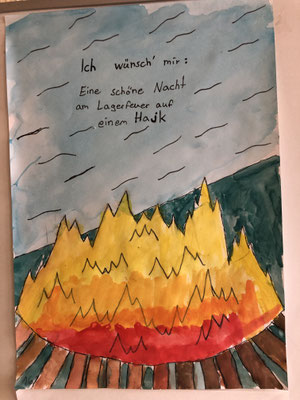 Ich wünsch' mir:
Eine schöne Nacht
am Lagerfeuer auf
einem Hajk